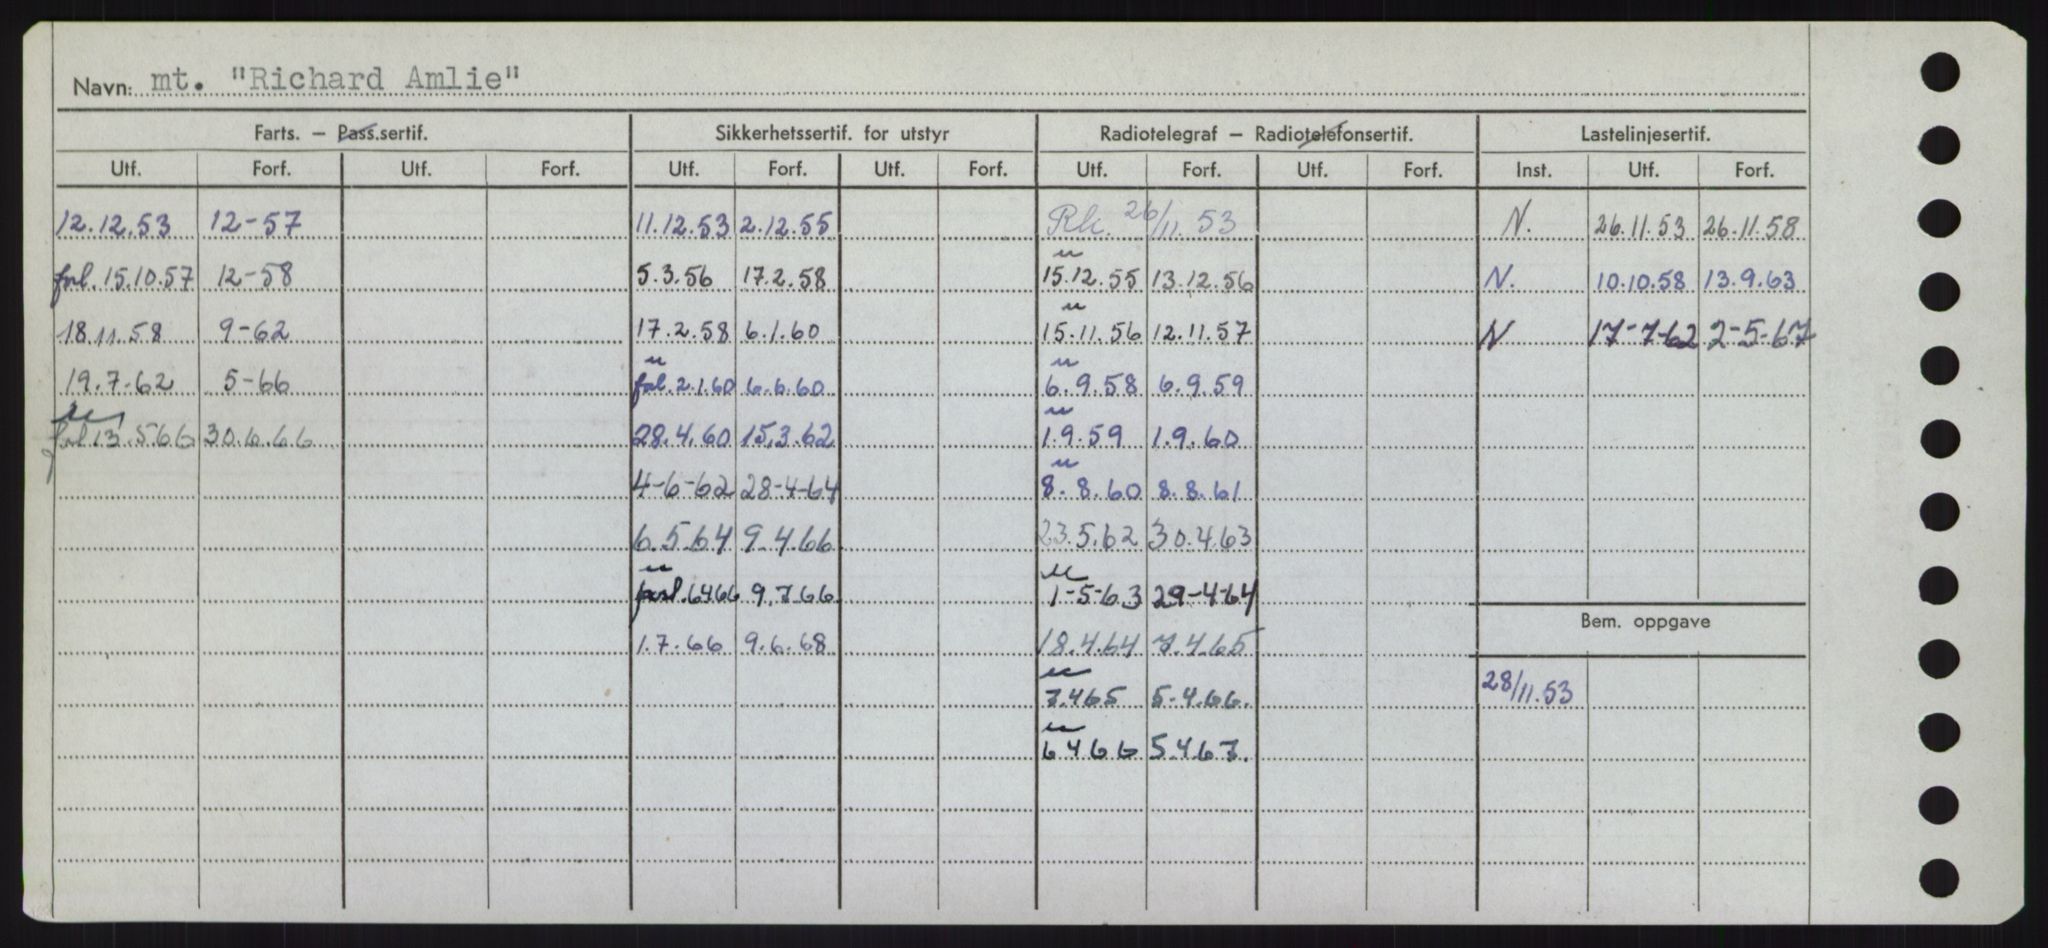 Navn: mt. "Richard Amlie"
Farts. — Pass.sertif. Sikkerhetssertif. for utstyr Radiotelegraf — Radiotelefonsertif. Lastelinjesertif.
Utf. Forf. Utf. Forf. Utf. Forf. Utf. Forf. Utf. Forf. Utf. Forf. Inst. Utf. Forf.
12.12.53 12-57 11.12.53 2.12.55 Rk. 26/11.53 N. 26.11.53 26.11.58
fol. 15.10.57 12-58 5.3.56 17.2.58 u 15.12.55 13.12.56 N. 10.10.58 13.9.63
18.11.58 9-62 17.2.58 6.1.60 u 15.11.56 12.11.57 N 17-7-62 2-5-67
19.7-62 5-66 u fol. 2.1.60 6.6.60 u 6.9.58 6.9.59
u fol. 13.5.66 30.6.66 28.4.60 15.3.62 u 1.9.59 1.9.60
4-6-62 28-4-64 u 8.8.60 8.8.61
6.5.64 9.4.66 23.5.62 30.4.63
u forl. 6466 9.7.66 u 1-5-63 29-4-64
1.7.66 9.6.68 18.4.64 7.4.65
Bem. oppgave
u 7.4.65 5-4.66. 28/11.53
u 6466 5.4.67.